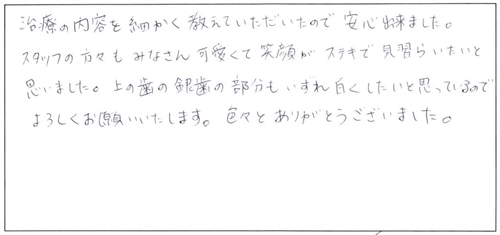 治療の内容を細かく教えていただいたので安心出来ました。
スタッフの方々もみなさん可愛くて笑顔がステキで見習らいたいと
思いました。上の歯の銀歯の部分もいずれ白くしたいと思っているので
よろしくお願いいたします。色々とありがとうございました。